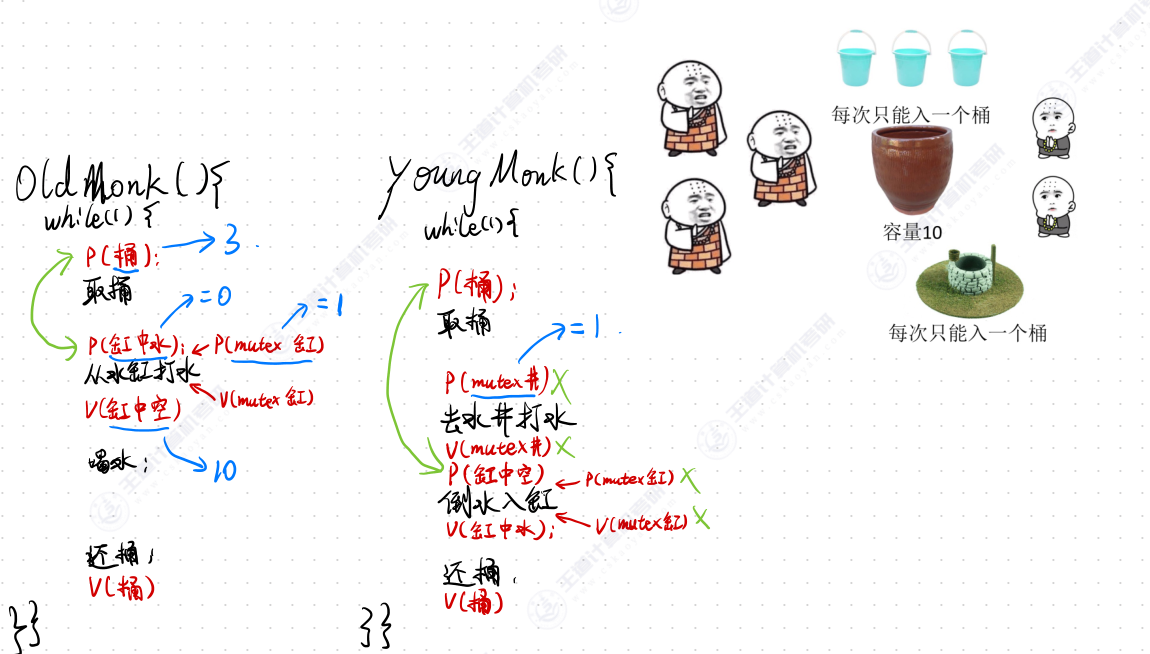 OldMonk(){
while(1){
P(桶); → 3.
取桶
=0
=1
P(缸中水); ← P(mutex 缸)
从水缸打水
V(mutex缸)
V(缸中空)
10
喝水;
还桶;
V(桶)
}}
YoungMonk(){
while(1){
P(桶);
取桶
=1.
P(mutex井) X
去水井打水
V(mutex井) X
P(缸中空) ← P(mutex缸) X
倒水入缸
V(mutex缸) X
V(缸中水);
还桶.
V(桶)
}}
每次只能入一个桶
容量10
每次只能入一个桶
王道计算机考研